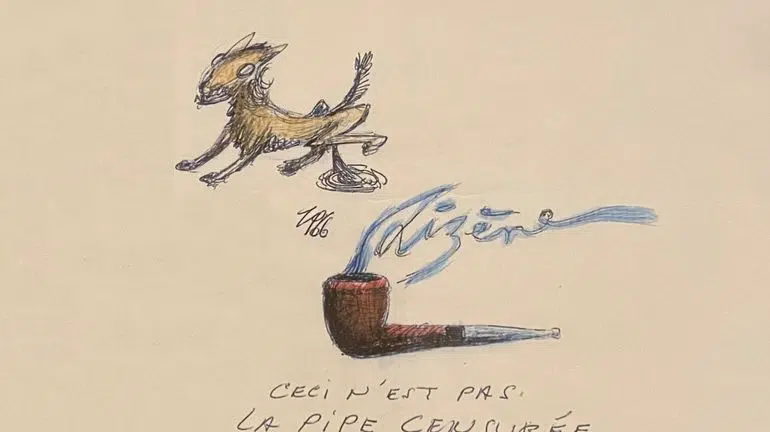 Lizène
CECI N'EST PAS.
LA PIPE CENSURÉE